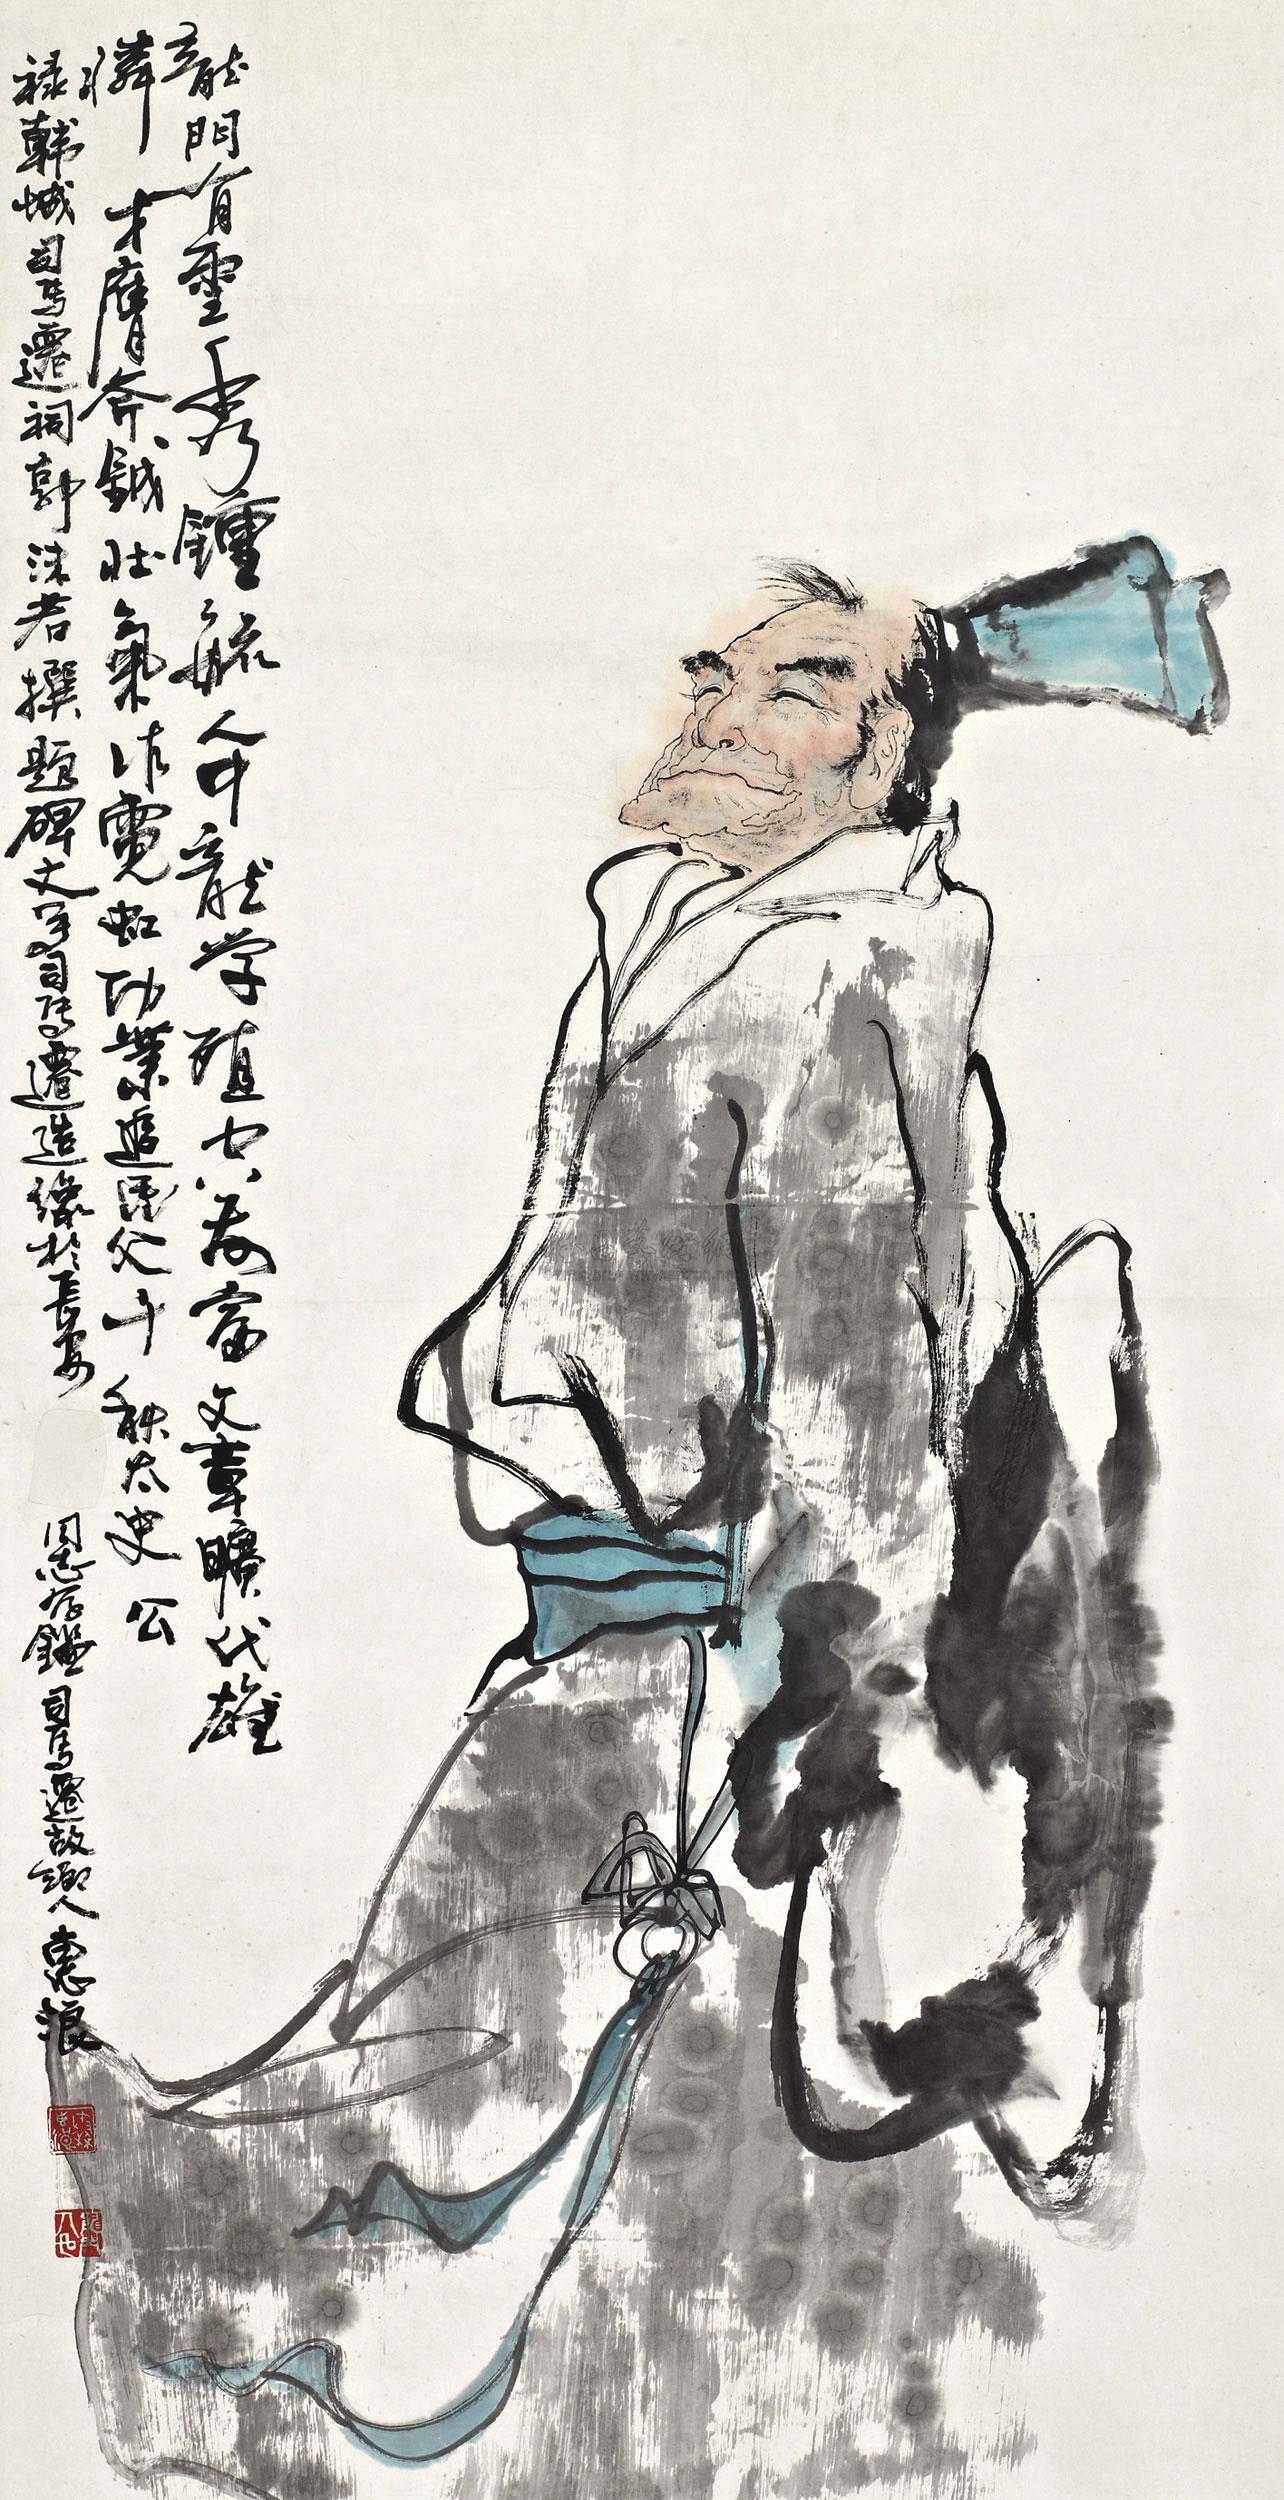 龍門有靈秀鍾毓人中龍学殖空前富文章曠代雄
憐才膺斧鉞壮氣作霓虹功業追尼父千秋太史公
禄韓城司馬遷祠郭沫若撰題碑文司馬遷造像於長安
同志存鑑司馬遷故鄉人惠浪